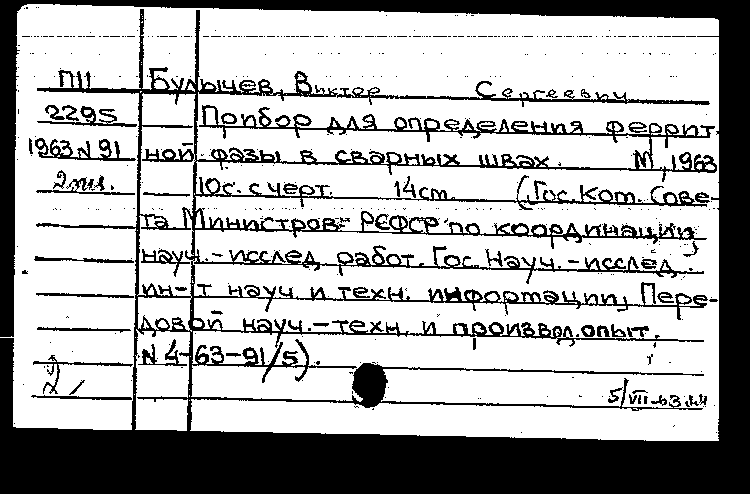 П11 Булычев, Виктор Сергеевич
2295 Прибор для определения феррит-
1963 N 91 ной фазы в сварных швах. М, 1963
2 экз. 10с. с черт. 14см. (Гос. Ком. Сове-
та Министров РСФСР по координации
науч.-исслед. работ. Гос. Науч.-исслед.
ин-т науч. и техн. информации, Пере-
довой науч.-техн. и производ. опыт.
N 4-63-91/5).
2
5/VII-63